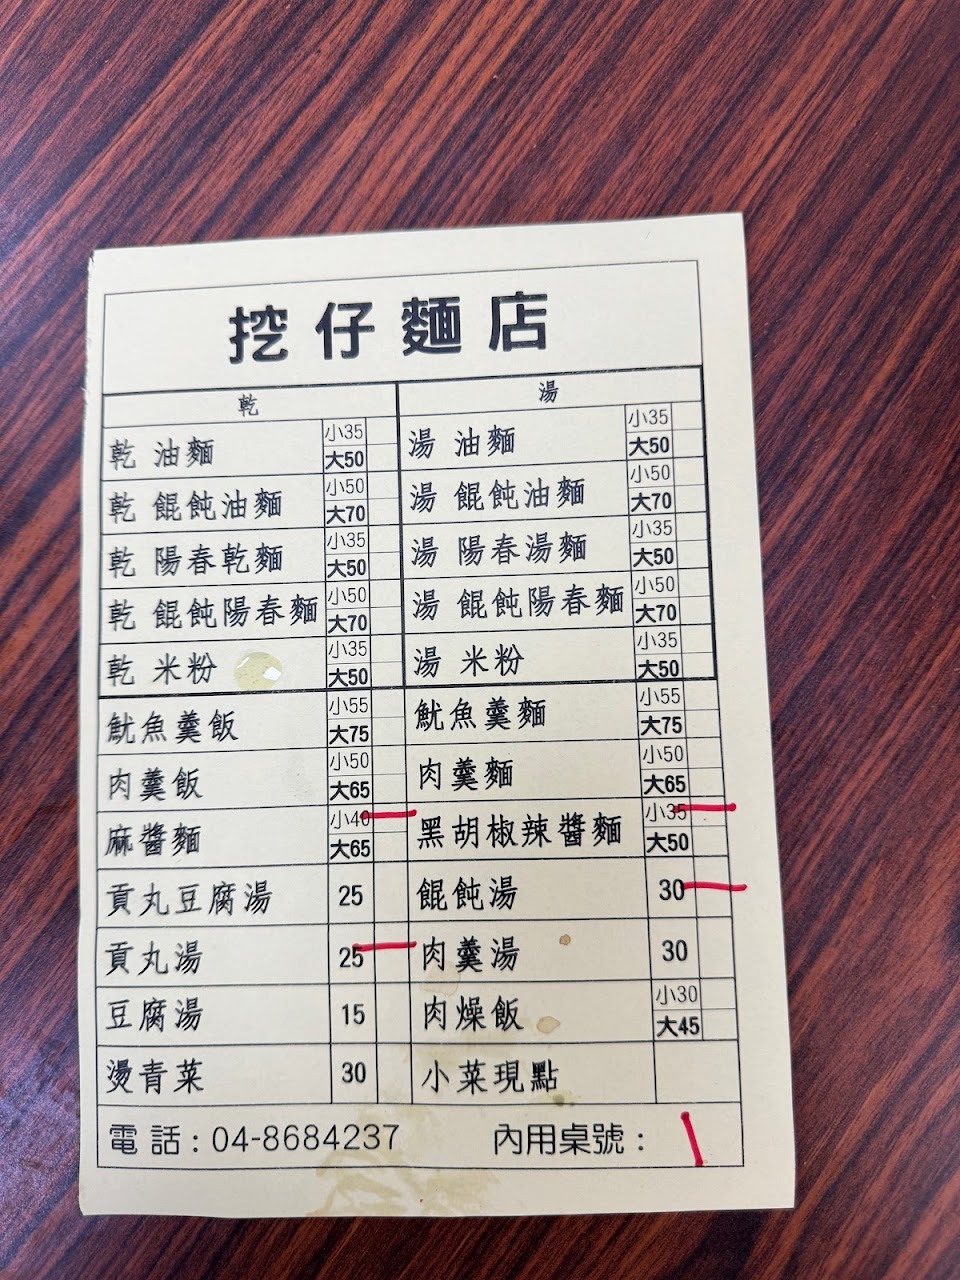 挖仔麵店
乾 湯
乾 油麵 小35 大50 湯 油麵 小35 大50
乾 餛飩油麵 小50 大70 湯 餛飩油麵 小50 大70
乾 陽春乾麵 小35 大50 湯 陽春湯麵 小35 大50
乾 餛飩陽春麵 小50 大70 湯 餛飩陽春麵 小50 大70
乾 米粉 小35 大50 湯 米粉 小35 大50
魷魚羹飯 小55 大75 魷魚羹麵 小55 大75
肉羹飯 小50 大65 肉羹麵 小50 大65
麻醬麵 小40 大65 黑胡椒辣醬麵 小35 大50
貢丸豆腐湯 25 餛飩湯 30
貢丸湯 25 肉羹湯 30
豆腐湯 15 肉燥飯 小30 大45
燙青菜 30 小菜現點
電話:04-8684237 內用桌號: 1